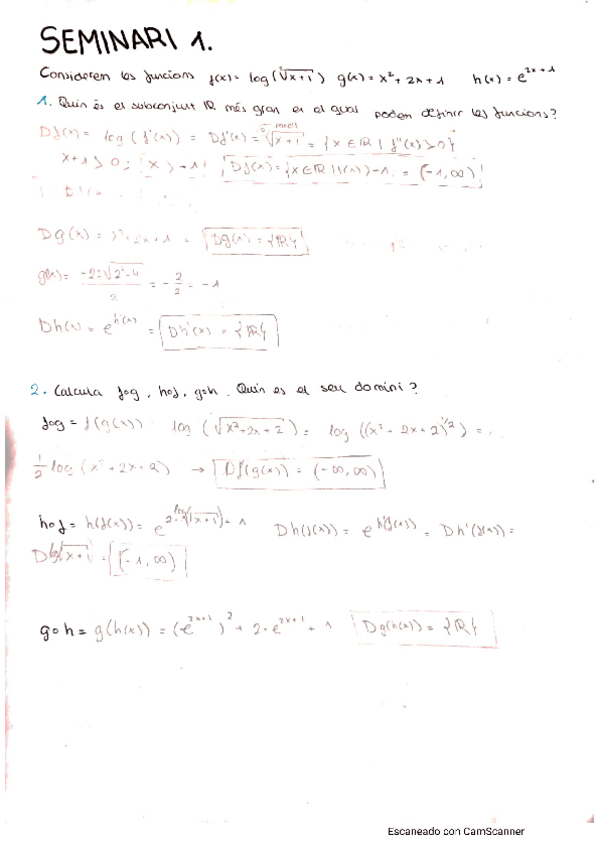 SEMINARI 1.
Considerem les funcions f(x)= log(√x+1) g(x)= x²+2x+1 h(x)= e^{2x+1}
1. Quin és el subconjunt ℝ més gran en el qual poden definir les funcions?
Df(x)= log(f'(x)) = Df'(x)= √x+1 = {x ∈ ℝ | f''(x) > 0}
x+1 > 0; x > -1; Df(x)= {x ∈ ℝ | > -1 = (-1, ∞)
Dg(x) = x²+2x+1 = Dg(x) = {ℝ}
g(x)= -2±√2²-4 / 2 = -2/2 = -1
Dh(x) = e^{h'(x)} = Dh'(x) = {ℝ}
2. Calcula fog, hof, goh. Quin es el seu domini?
fog = f(g(x)) log (√x²+2x+2) = log ((x²+2x+2)^{1/2}) =
1/2 log (x²+2x+2) → Df(g(x)) = (-∞, ∞)
hof = h(f(x)) = e^{2·log(√x+1)+1} Dh(f(x)) = e^{h'(f(x))} = Dh'(f(x)) =
D log(√x+1 = (-1, ∞)
goh = g(h(x)) = (e^{2x+1})² + 2·e^{2x+1} + 1 Dg(h(x)) = {ℝ}
Escaneado con CamScanner